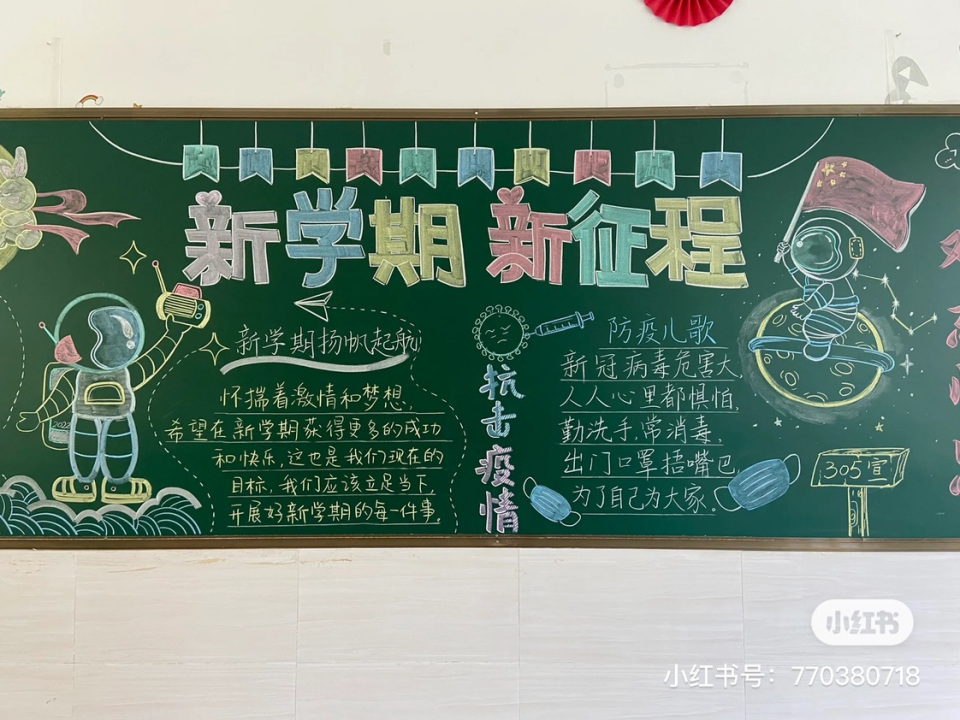 新学期 新征程
新学期扬帆起航
怀揣着激情和梦想
希望在新学期获得更多的成功
和快乐,这也是我们现在的
目标,我们应该立足当下,
开展好新学期的每一件事.
抗击疫情
防疫儿歌
新冠病毒危害大,
人人心里都惧怕,
勤洗手,常消毒,
出门口罩捂嘴巴,
为了自己为大家.
305宣
小红书
小红书号:770380718